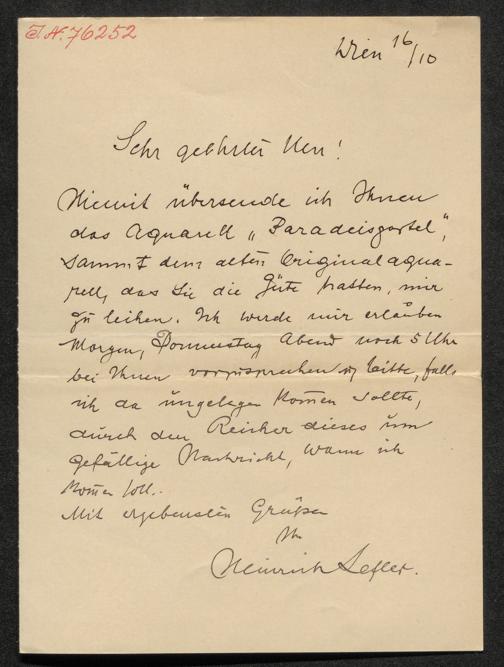 J.N. 76252
Wien 16/10
Sehr geehrter Herr!
Hiemit übersende ich Ihnen
das Aquarell „Paradeisgartel",
sammt dem alten Originalaqua-
rell, das Sie die Güte hatten, mir
zu leihen. Ich werde mir erlauben
Morgen, Donnerstag Abend nach 5 Uhr
bei Ihnen vorzusprechen u bitte, falls
ich da ungelegen kom̄en sollte,
durch den Reicher dieses um
gefällige Nachricht, wann ich
kom̄en soll.
Mit ergebensten Grüßen
Ihr
Heinrich Lefler.